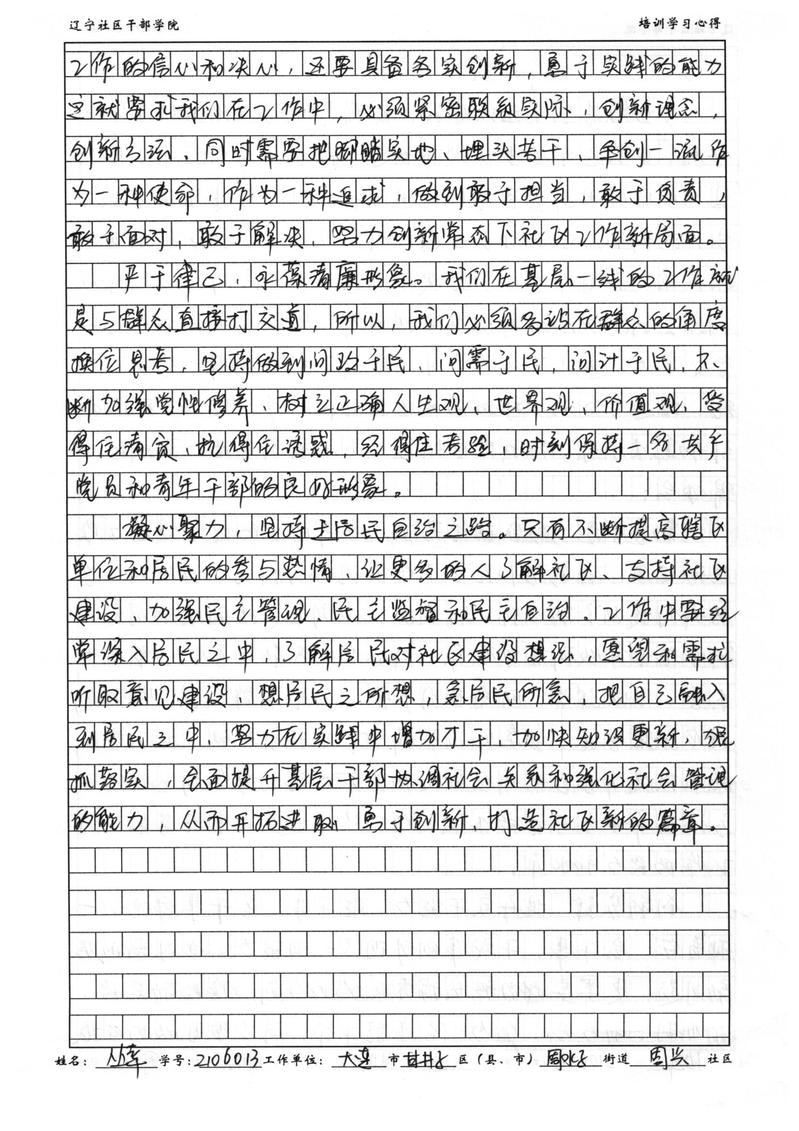 辽宁社区干部学院 培训学习心得
工作的信心和决心，还要具备务实创新，勇于实践的能力
这就要求我们在工作中，必须紧密联系实际，创新理念，
创新方法、同时需要把脚踏实地、埋头苦干，争创一流作
为一种使命，作为一种追求，做到敢于担当，敢于负责，
敢于面对，敢于解决，努力创新常态下社区工作新局面。
严于律己，永葆清廉形象。我们在基层一线的工作就
是与群众直接打交道，所以，我们必须多站在群众的角度
换位思考，坚持做到问政于民，问需于民，问计于民，不
断加强党性修养、树立正确人生观、世界观，价值观，受
得住清贫，抗得住诱惑，经得住考验，时刻保持一名共产
党员和青年干部的良好形象。
凝心聚力，坚持走居民自治之路。只有不断提高辖区
单位和居民的参与热情、让更多的人了解社区、支持社区
建设、加强民主管理、民主监督和民主自治。工作中要经
常深入居民之中，了解居民对社区建设想法，愿望和需求
听取意见建设，想居民之所想，急居民所急，把自己融入
到居民之中，努力在实践中增加才干，加快知识更新，
抓落实，全面提升基层干部协调社会关系和强化社会管理
的能力，从而开拓进取、勇于创新、打造社区新的篇章。
姓名： 学号：2106013 工作单位：大连 市 甘井子 区（县、市） 周水子 街道 固兴 社区